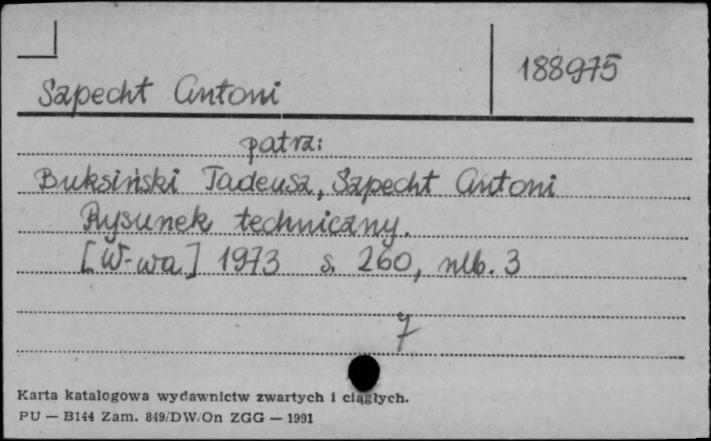 188975
Szpecht Antoni
patrz:
Buksiński Tadeusz, Szpecht Antoni
Rysunek techniczny.
[W-wa] 1973 s. 260, nlb. 3
7
Karta katalogowa wydawnictw zwartych i ciągłych.
PU — B144 Zam. 849/DW/On ZGG — 1991